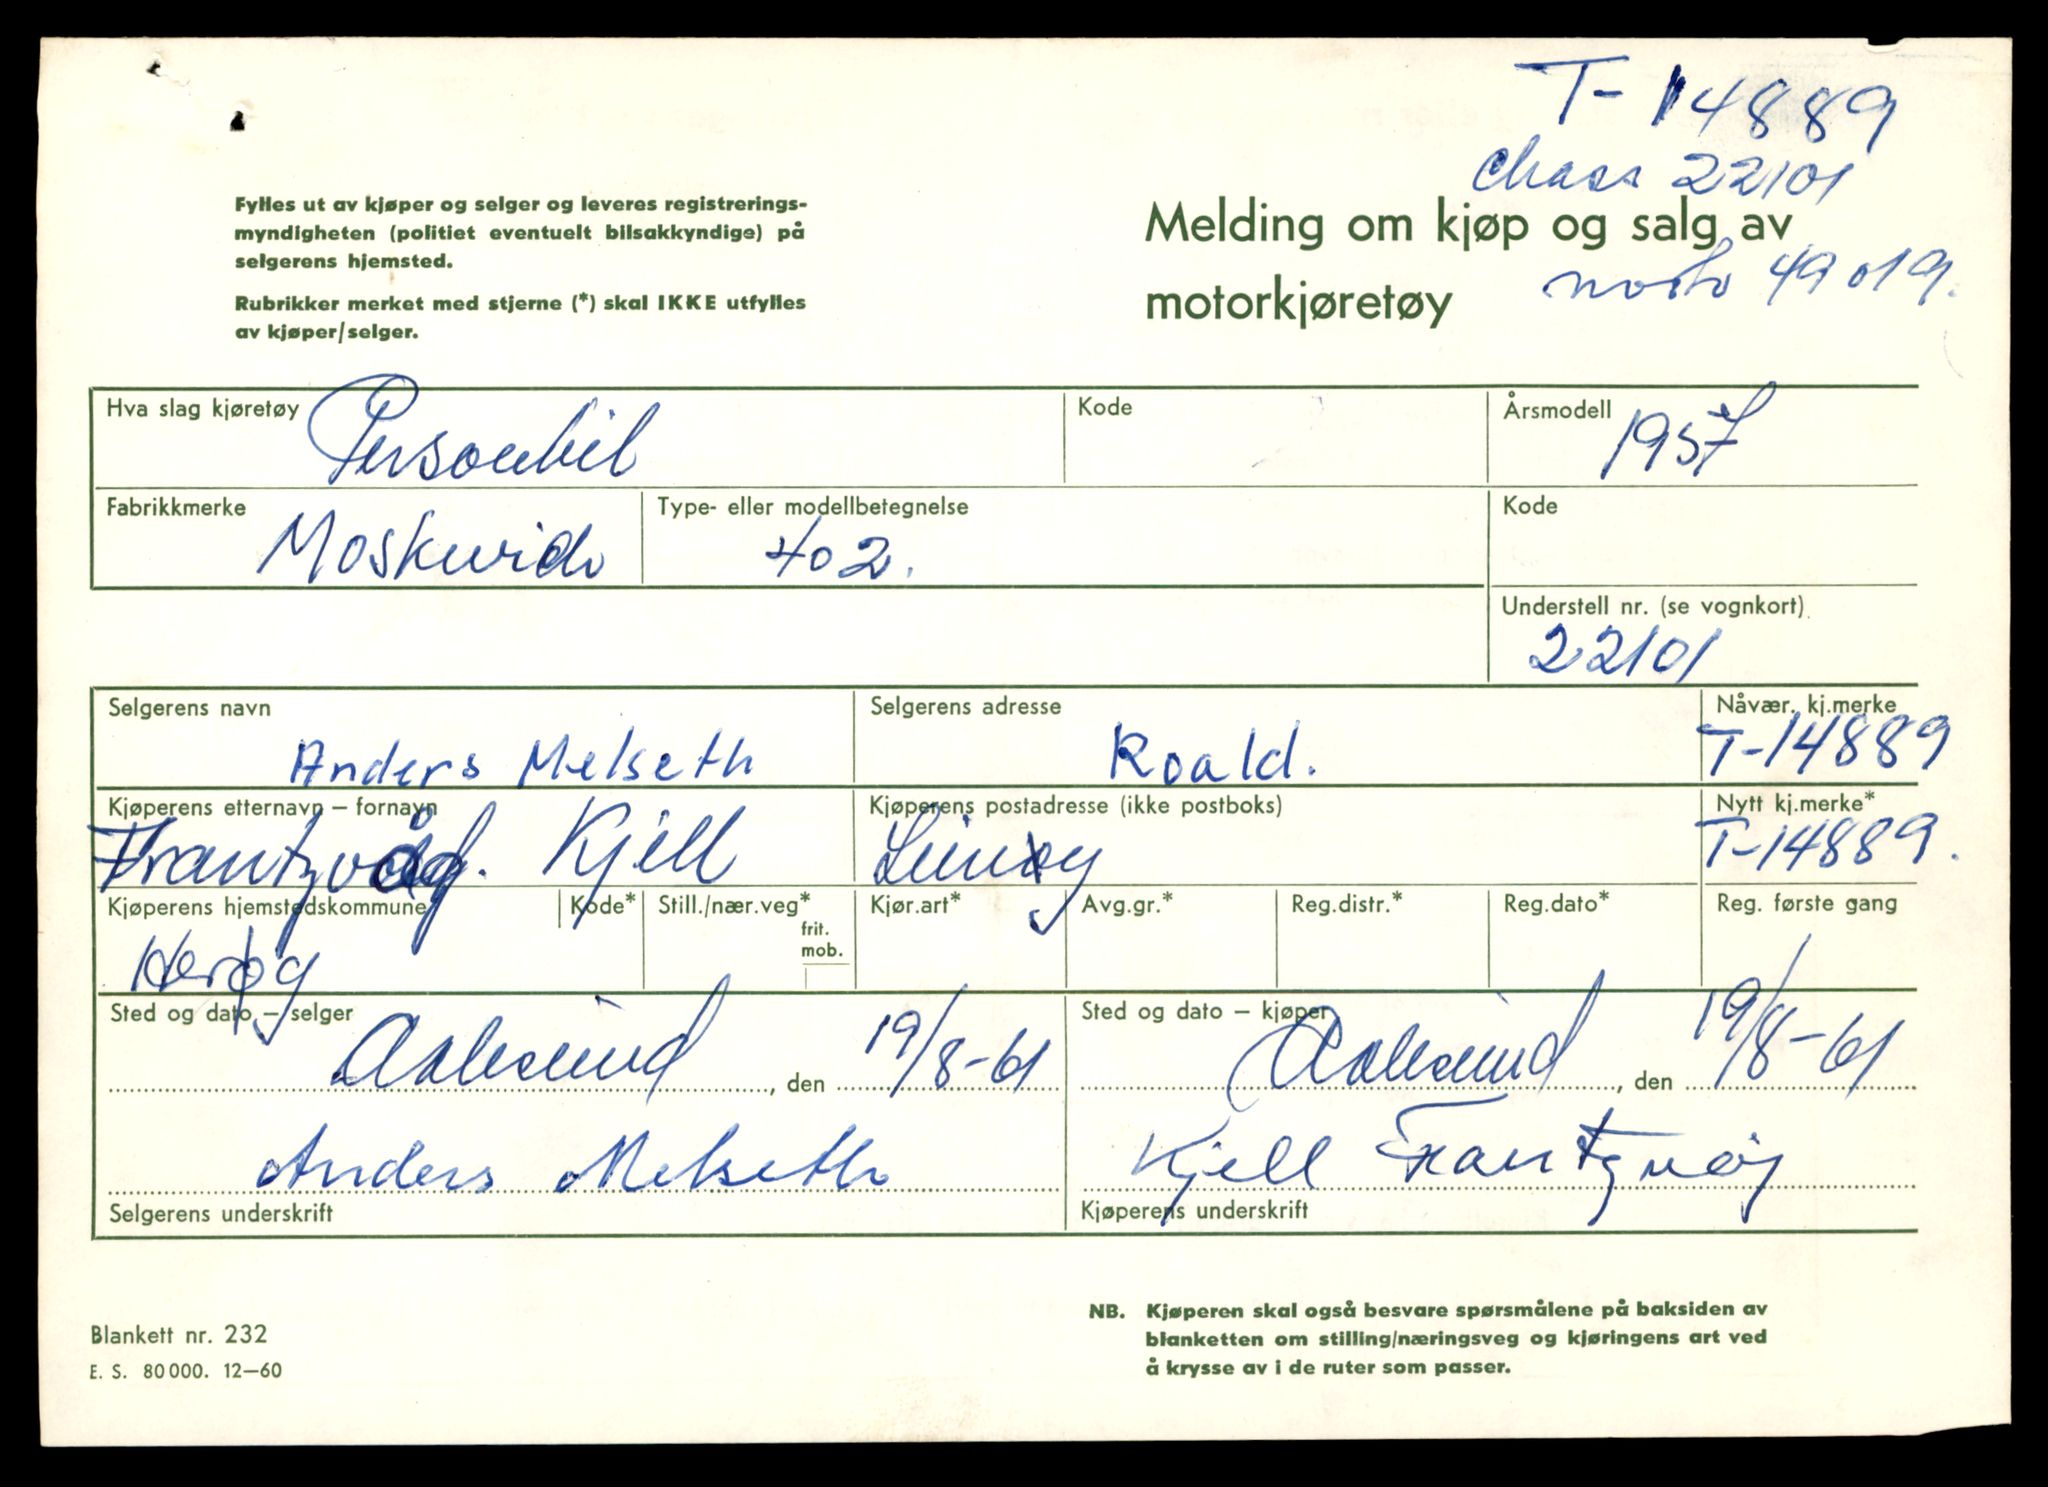 T-14889
chass 22101
Fylles ut av kjøper og selger og leveres registrerings-
myndigheten (politiet eventuelt bilsakkyndige) på
selgerens hjemsted.
Rubrikker merket med stjerne (*) skal IKKE utfylles
av kjøper/selger.
Melding om kjøp og salg av
motorkjøretøy
49019.
Hva slag kjøretøy Personbil Kode Årsmodell 1957
Fabrikkmerke Moskvich Type- eller modellbetegnelse 402. Kode
Understell nr. (se vognkort)
22101
Selgerens navn Selgerens adresse Nåvær. kj.merke
Anders Melseth Roald. T-14889
Kjøperens etternavn – fornavn Kjøperens postadresse (ikke postboks) Nytt kj.merke*
Kjell T-14889.
Kjøperens hjemstedskommune Kode* Still./nær.veg* frit. mob. Kjør.art* Avg.gr.* Reg.distr.* Reg.dato* Reg. første gang
Herøy
Sted og dato – selger Sted og dato – kjøper
Aalesund, den 19/8-61 Aalesund, den 19/8-61
Anders Melseth Kjell
Selgerens underskrift Kjøperens underskrift
Blankett nr. 232
E. S. 80000. 12–60
NB. Kjøperen skal også besvare spørsmålene på baksiden av
blanketten om stilling/næringsveg og kjøringens art ved
å krysse av i de ruter som passer.